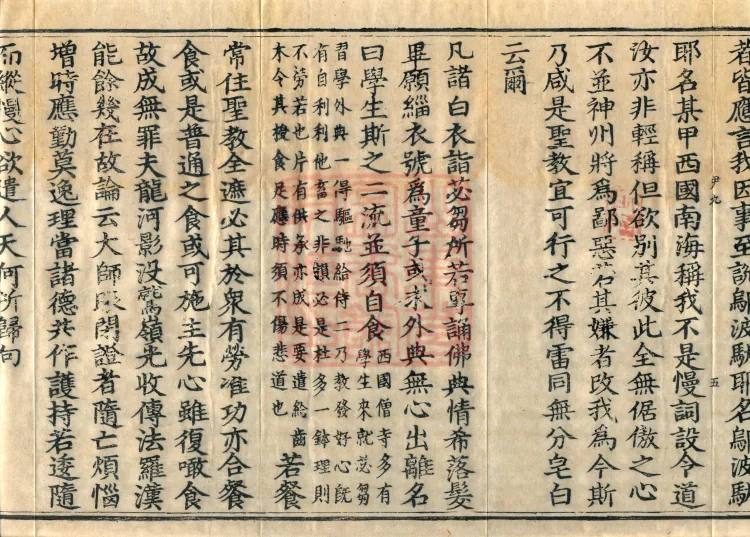 者皆應言我因事至說鄔波馱耶名鄔波馱
尹九 五
耶名某甲西國南海稱我不是慢詞設令道
汝亦非輕稱但欲別其彼此全無倨傲之心
不並神州將爲鄙惡若其嫌者改我爲今斯
乃咸是聖教宜可行之不得雷同無分皂白
云爾
凡諸白衣詣苾芻所若專誦佛典情希落髮
畢願緇衣號爲童子或求外典無心出離名
曰學生斯之二流並須自食
西國僧寺多有
學生來就苾芻
習學外典一得驅馳給侍二乃教發好心旣
有自利利他畜之非損必是杜多一鉢理則
不勞若也片有供承亦成是要遣給齒
木令其授食足應時須不傷悲道也
若餐
常住聖教全遮必其於衆有勞准功亦合餐
食或是普通之食或可施主先心雖復噉食
故成無罪夫龍河影沒鷲嶺光收傳法羅漢
能餘幾在故論云大師眼閉證者隨亡煩惱
增時應勤莫逸理當諸德共作護持若逶隨
而縱慢心欲遣人天何所歸向